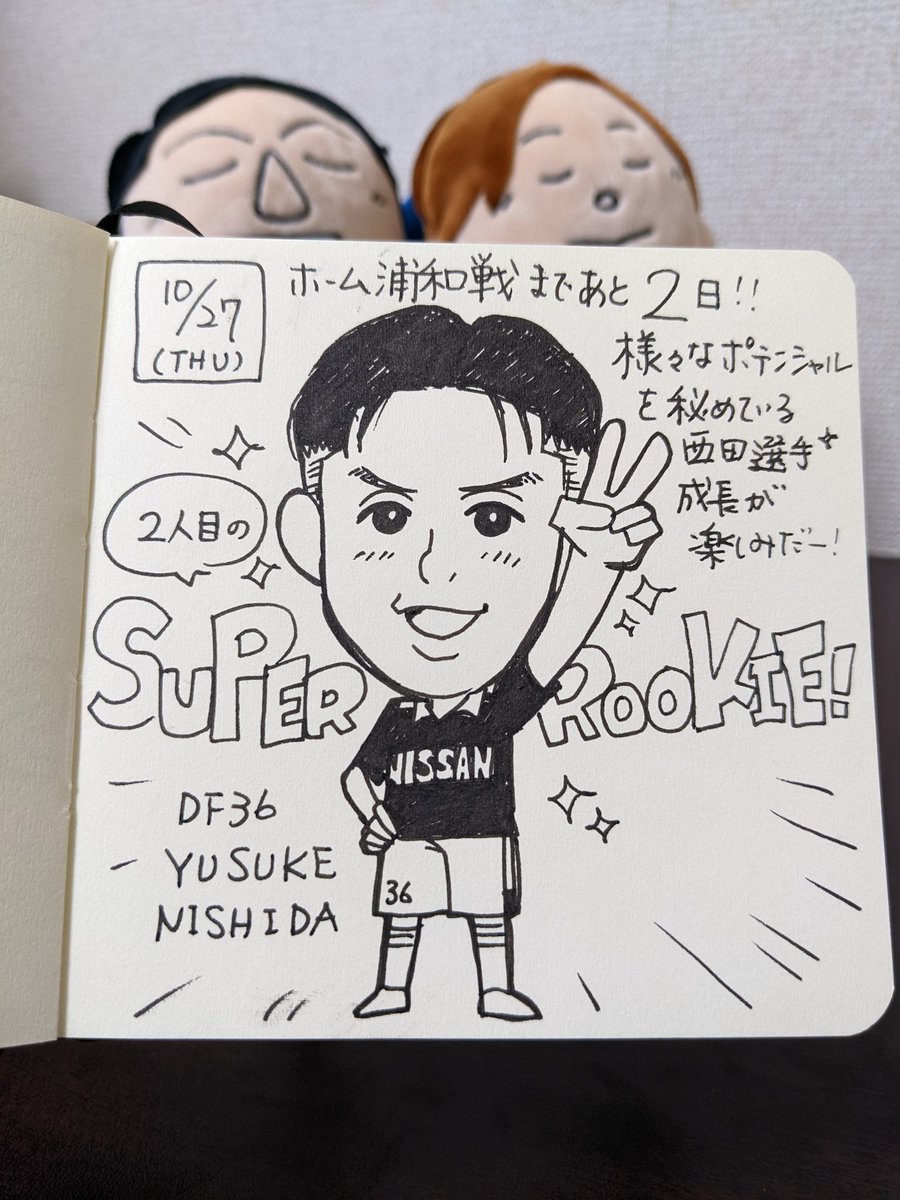 10/27
(THU)
ホーム浦和戦まであと2日!!
様々なポテンシャル
を秘めている
西田選手☆
成長が
楽しみだー!
2人目の
SUPER ROOKIE!
NISSAN
36
DF36
YUSUKE
NISHIDA